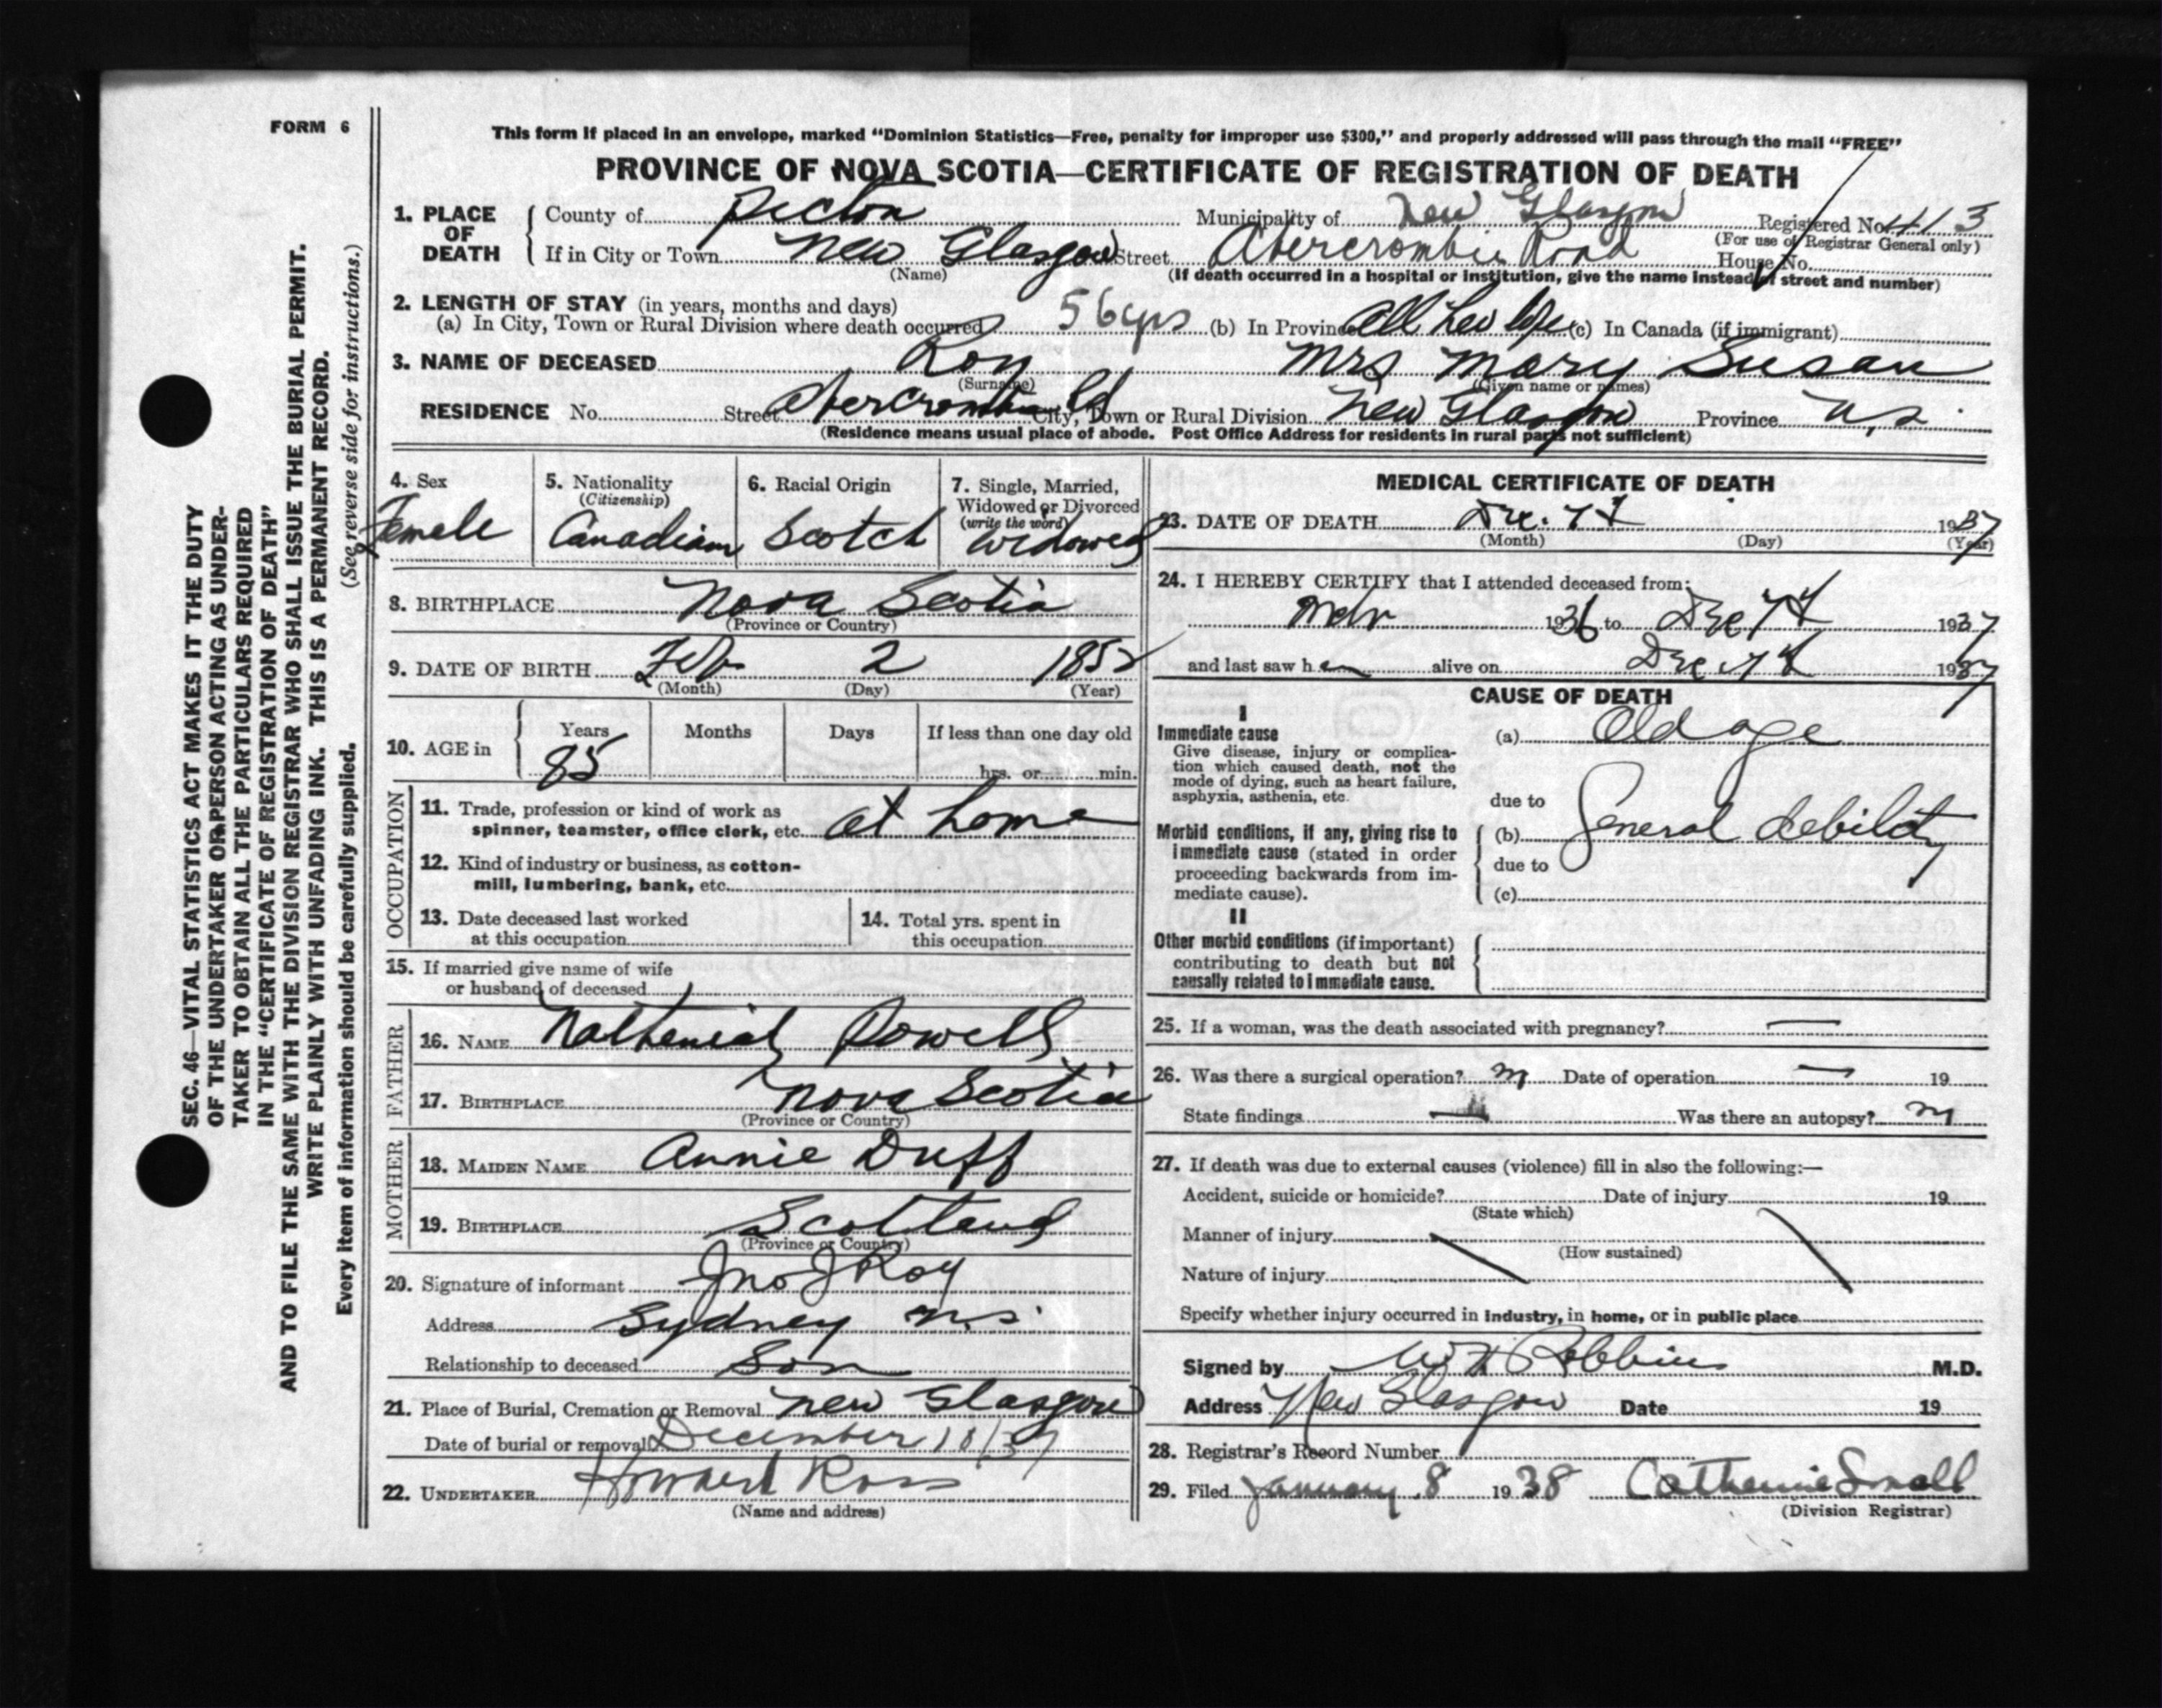 FORM 6
This form if placed in an envelope, marked "Dominion Statistics—Free, penalty for improper use $300," and properly addressed will pass through the mail "FREE"
PROVINCE OF NOVA SCOTIA—CERTIFICATE OF REGISTRATION OF DEATH
1. PLACE OF DEATH
County of Pictou Municipality of New Glasgow Registered No. 4113
(For use of Registrar General only)
If in City or Town New Glasgow Street Abercrombie Road House No.
(Name) (If death occurred in a hospital or institution, give the name instead of street and number)
2. LENGTH OF STAY (in years, months and days)
(a) In City, Town or Rural Division where death occurred 56 yrs (b) In Province All her life (c) In Canada (if immigrant)
3. NAME OF DECEASED Roy Mrs Mary Susan
(Surname) (Given name or names)
RESIDENCE No. Street Abercrombie Rd City, Town or Rural Division New Glasgow Province N.S.
(Residence means usual place of abode. Post Office Address for residents in rural parts not sufficient)
4. Sex
Female
5. Nationality
(Citizenship)
Canadian
6. Racial Origin
Scotch
7. Single, Married,
Widowed or Divorced
(write the word)
Widowed
8. BIRTHPLACE Nova Scotia
(Province or Country)
9. DATE OF BIRTH Feb 2 1852
(Month) (Day) (Year)
10. AGE in
Years Months Days If less than one day old
85 hrs. or min.
OCCUPATION
11. Trade, profession or kind of work as
spinner, teamster, office clerk, etc. At home
12. Kind of industry or business, as cotton-
mill, lumbering, bank, etc.
13. Date deceased last worked
at this occupation
14. Total yrs. spent in
this occupation
15. If married give name of wife
or husband of deceased
FATHER
16. NAME Nathenial Powell
17. BIRTHPLACE Nova Scotia
(Province or Country)
MOTHER
18. MAIDEN NAME Annie Duff
19. BIRTHPLACE Scotland
(Province or Country)
20. Signature of informant Jno J Roy
Address Sydney N.S.
Relationship to deceased Son
21. Place of Burial, Cremation or Removal New Glasgow
Date of burial or removal December 10/37
22. UNDERTAKER Howard Ross
(Name and address)
MEDICAL CERTIFICATE OF DEATH
23. DATE OF DEATH Dec. 7th 1937
(Month) (Day) (Year)
24. I HEREBY CERTIFY that I attended deceased from:
Mar 1936 to Dec 7th 1937
and last saw her alive on Dec 7th 1937
CAUSE OF DEATH
I
Immediate cause
Give disease, injury or complica-
tion which caused death, not the
mode of dying, such as heart failure,
asphyxia, asthenia, etc.
(a) Old age
due to
Morbid conditions, if any, giving rise to
immediate cause (stated in order
proceeding backwards from im-
mediate cause).
(b) General debility
due to
(c)
II
Other morbid conditions (if important)
contributing to death but not
causally related to immediate cause.
25. If a woman, was the death associated with pregnancy? —
26. Was there a surgical operation? no Date of operation — 19
State findings — Was there an autopsy? no
27. If death was due to external causes (violence) fill in also the following:—
Accident, suicide or homicide? Date of injury 19
(State which)
Manner of injury
(How sustained)
Nature of injury
Specify whether injury occurred in industry, in home, or in public place
Signed by W H Robbins M.D.
Address New Glasgow Date 19
28. Registrar's Record Number
29. Filed January 8 1938 Catherine Small
(Division Registrar)
SEC. 46—VITAL STATISTICS ACT MAKES IT THE DUTY
OF THE UNDERTAKER OR PERSON ACTING AS UNDER-
TAKER TO OBTAIN ALL THE PARTICULARS REQUIRED
IN THE "CERTIFICATE OF REGISTRATION OF DEATH"
AND TO FILE THE SAME WITH THE DIVISION REGISTRAR WHO SHALL ISSUE THE BURIAL PERMIT.
WRITE PLAINLY WITH UNFADING INK. THIS IS A PERMANENT RECORD.
Every item of information should be carefully supplied. (See reverse side for instructions.)